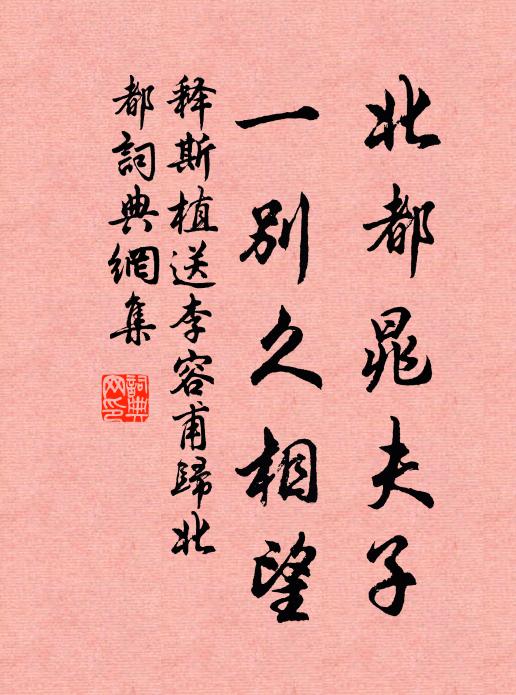 北都晁夫子
一別久相望
释斯植送李容甫歸北
都詞典網集
詞典
网印